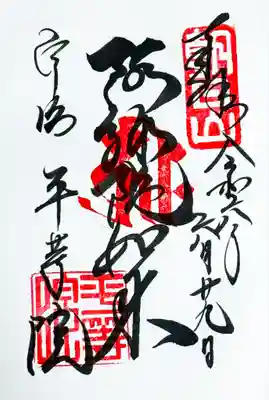 朝日山
奉拝 令和 月廿九日
阿弥陀如来
宇治 平等院